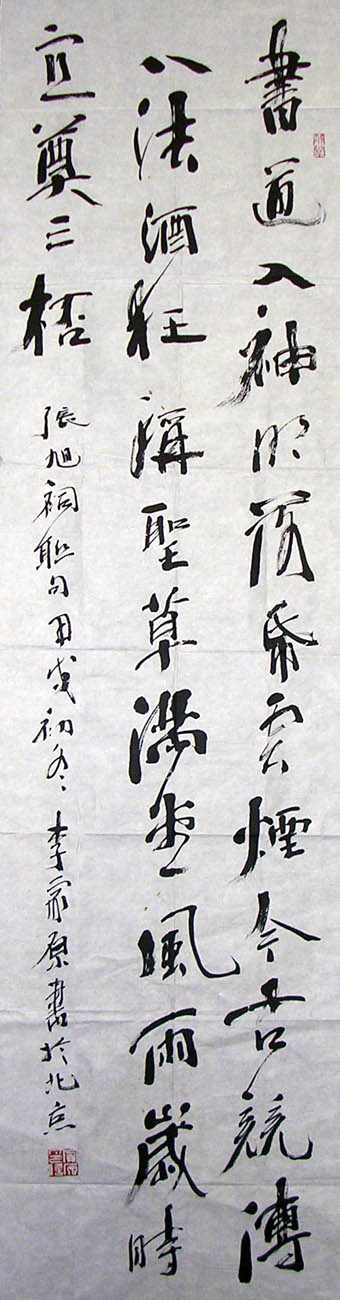 書道入神明落帋雲煙今古競傳
八法酒狂稱聖草滿堂風雨歲時
宜奠三桮
張旭祠聯句丙戌初冬李家原書於北京